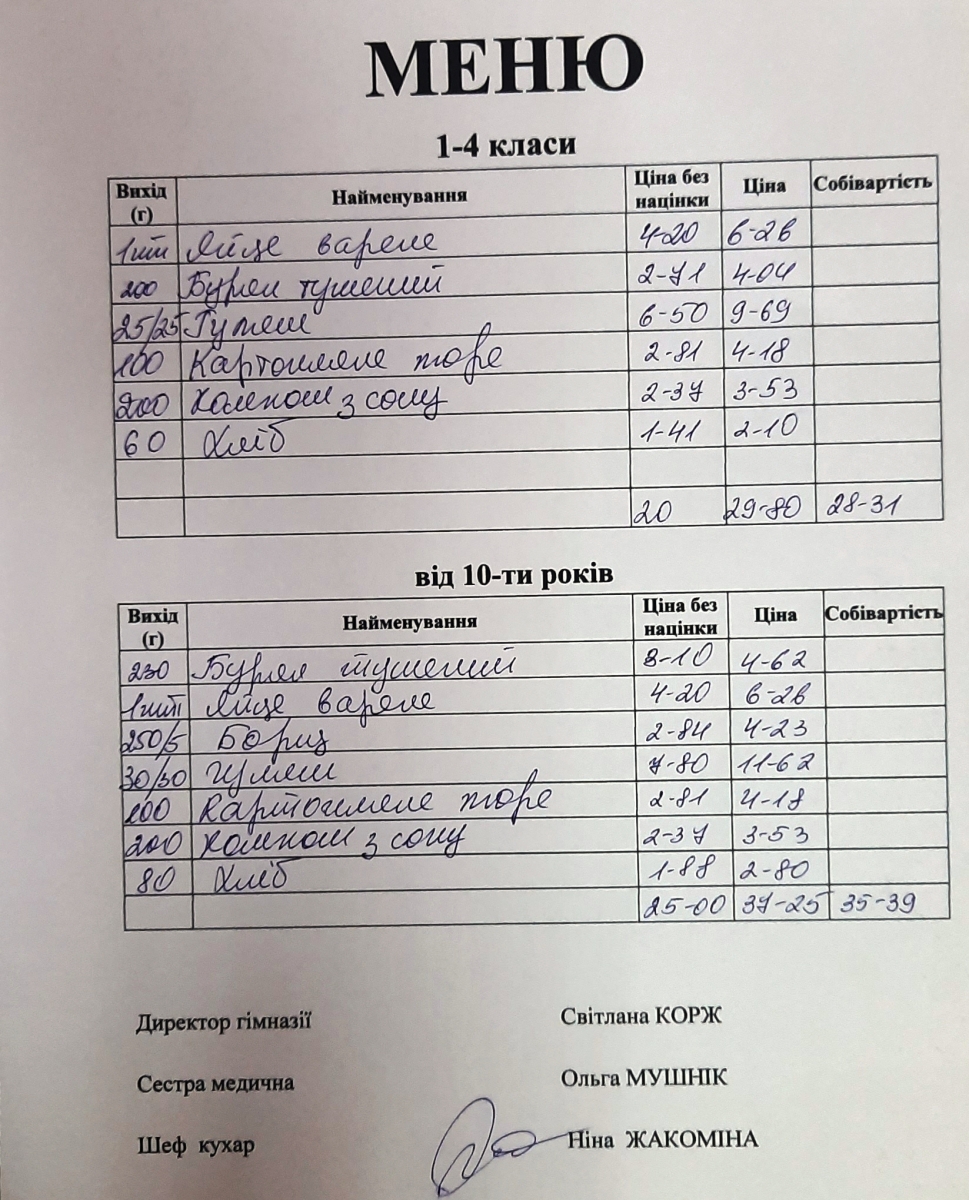 МЕНЮ
1-4 класи
Вихід (г) Найменування Ціна без націнки Ціна Собівартість
1шт Яйце варене 4-20 6-26
200 Буряк тушений 2-71 4-04
25/25 Гуляш 6-50 9-69
100 Картопляне пюре 2-81 4-18
200 Компот з соку 2-37 3-53
60 Хліб 1-41 2-10
20 29-80 28-31
від 10-ти років
Вихід (г) Найменування Ціна без націнки Ціна Собівартість
230 Буряк тушений 3-10 4-62
1шт Яйце варене 4-20 6-26
250/5 Борщ 2-84 4-23
30/30 гуляш 7-80 11-62
100 Картопляне пюре 2-81 4-18
200 Компот з соку 2-37 3-53
80 Хліб 1-88 2-80
25-00 37-25 35-39
Директор гімназії Світлана КОРЖ
Сестра медична Ольга МУШНІК
Шеф кухар Ніна ЖАКОМІНА